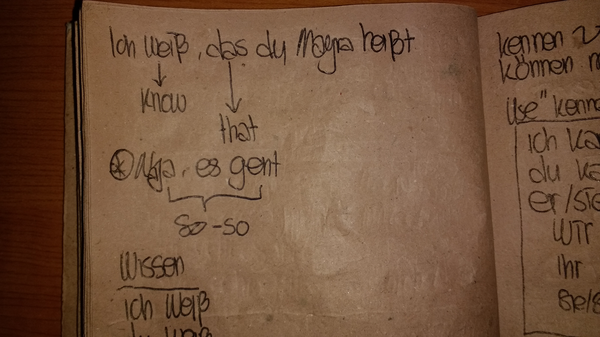 Ich weiß, das du Magra heißt
know
that
Naja, es geht
so-so
Wissen
ich weiß
du weiß
kennen
können
use "kenne
ich ka
du ka
er/sie
wir
ihr
sie/s